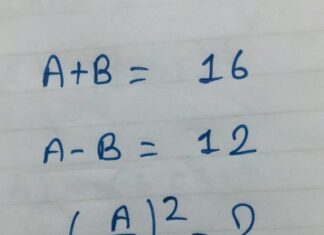 A+B = 16
A-B = 12
(A)² =